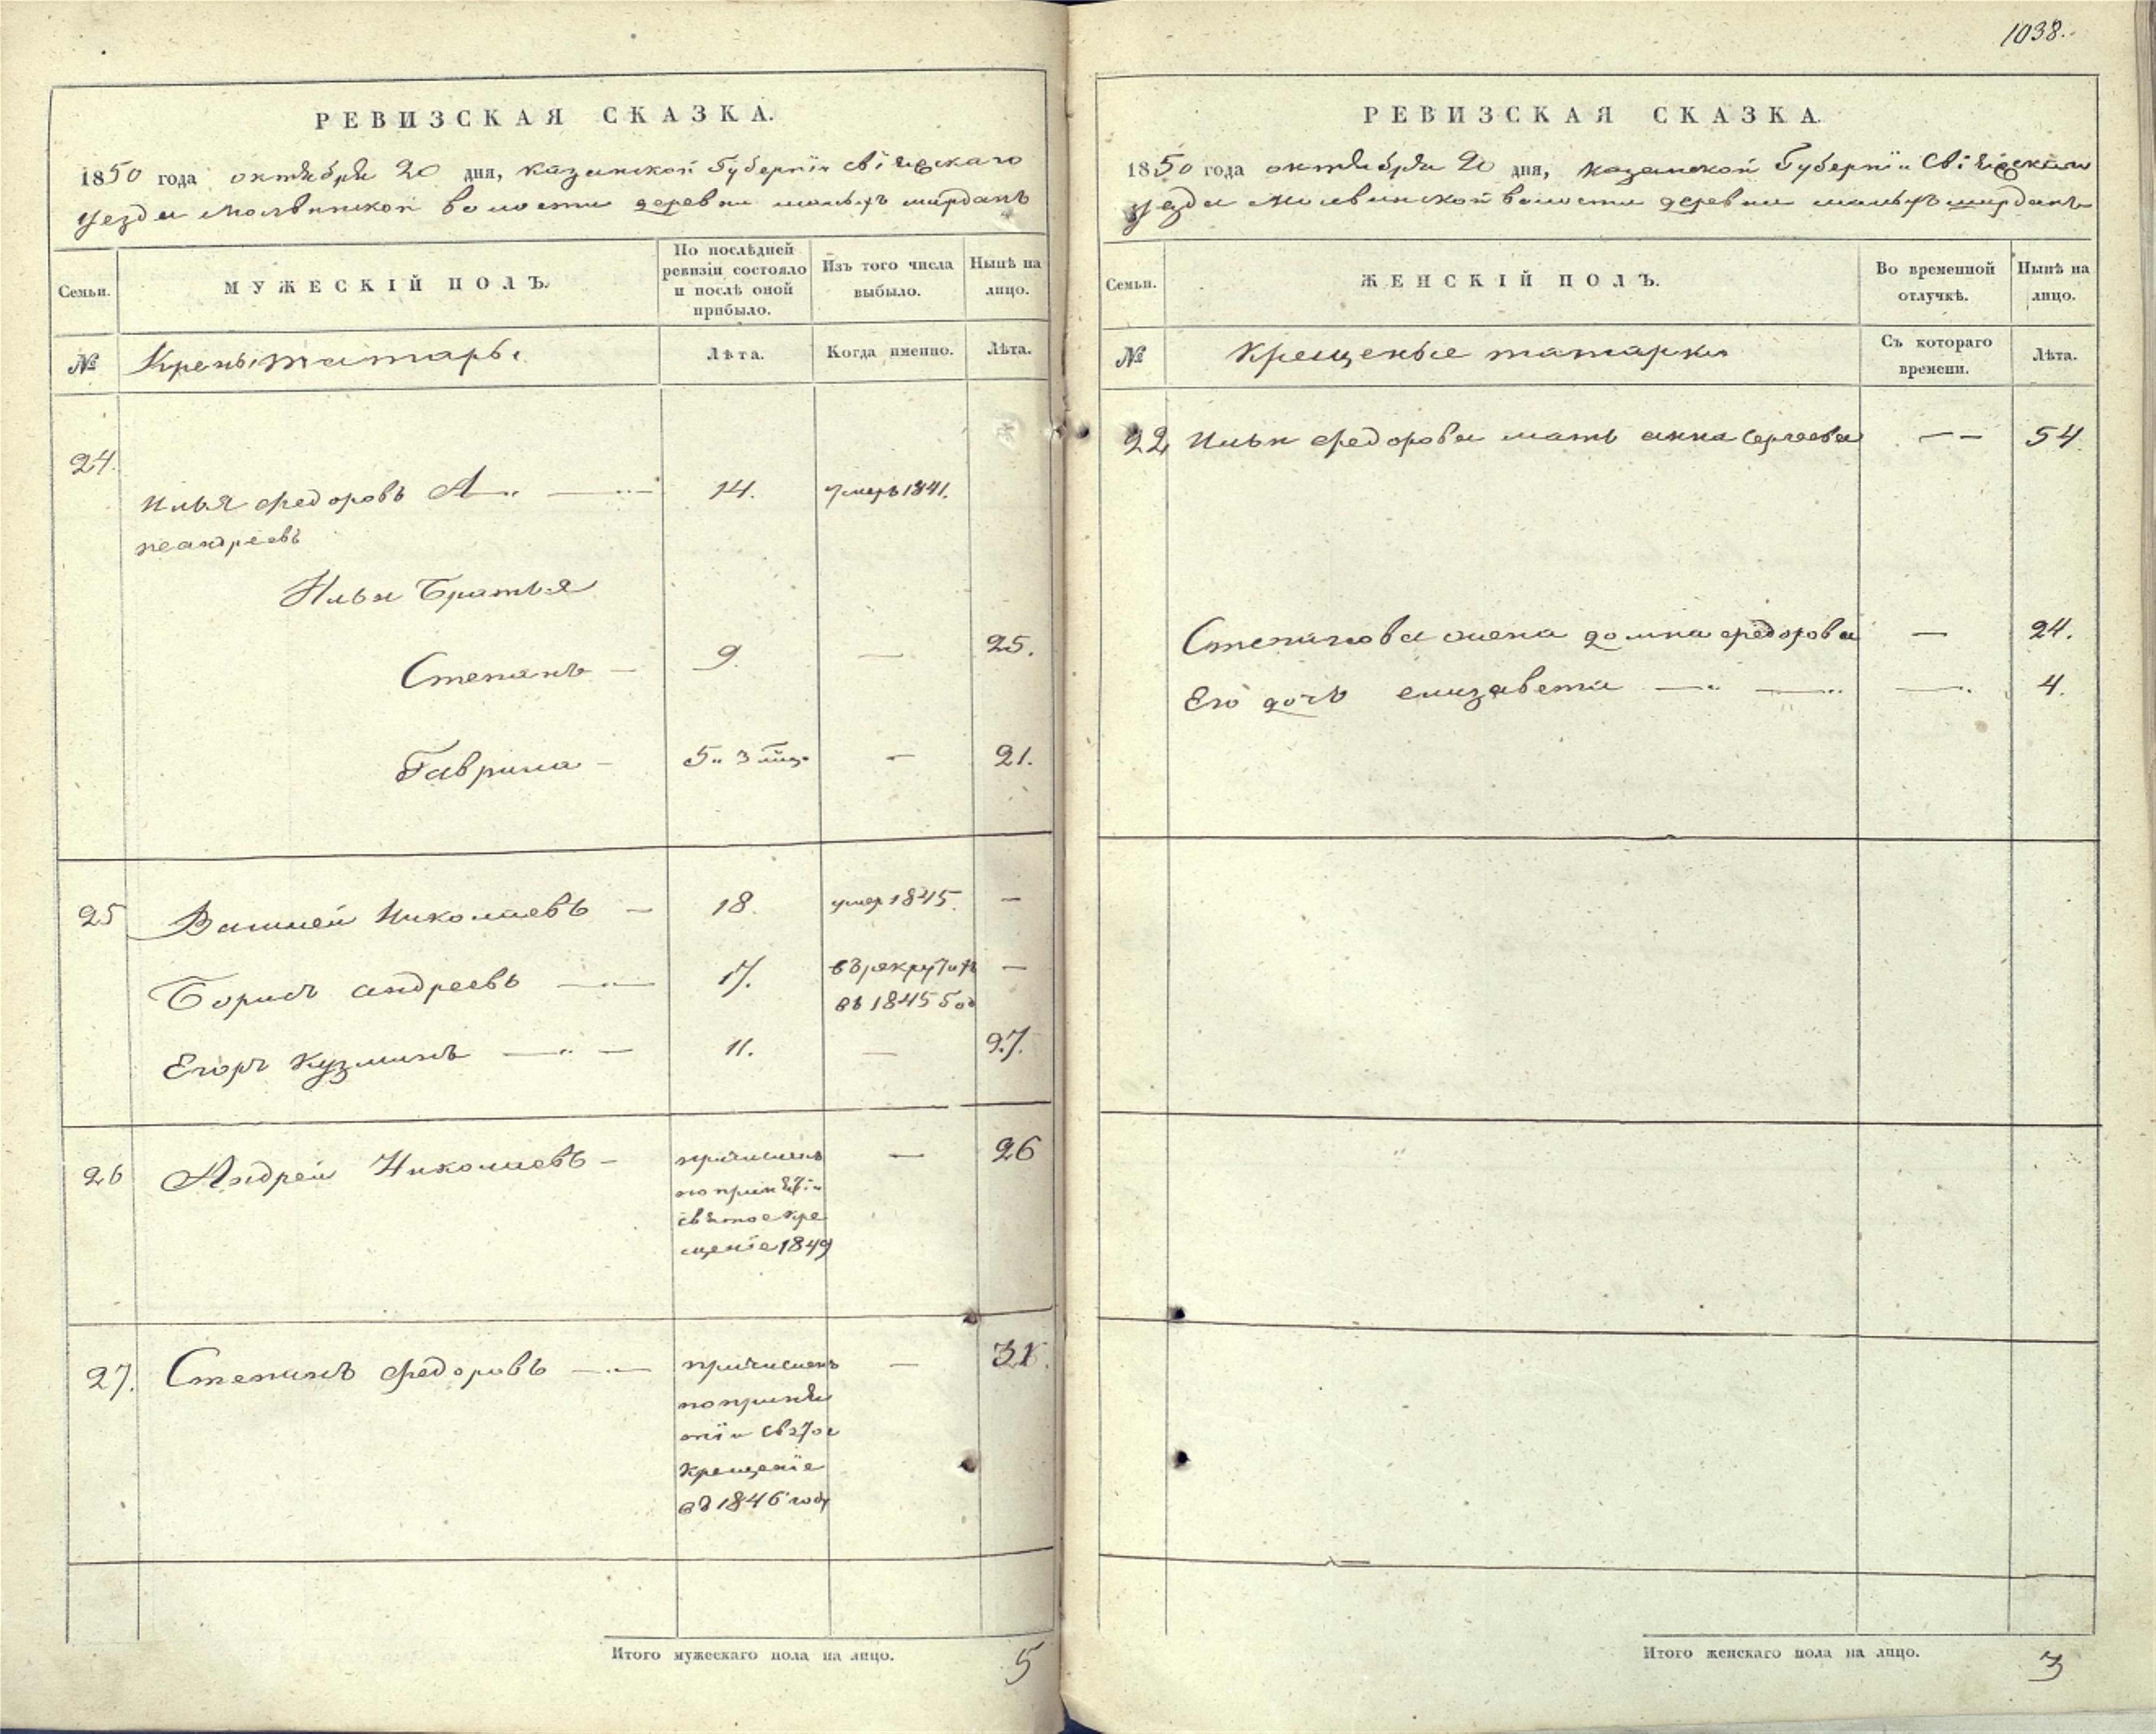 1038.
РЕВИЗСКАЯ СКАЗКА.
1850 года октября 20 дня, казанской Губерніи Свіяжскаго
уезда Молвинской волости деревни малыхъ ширданъ
Семьи.
МУЖЕСКІЙ ПОЛЪ.
По послѣдней ревизіи состояло и послѣ оной прибыло.
Изъ того числа выбыло.
Нынѣ на лицо.
№
татары
Лѣта.
Когда именно.
Лѣта.
24.
Илья федоровъ 14. умеръ 1841.
неандреевъ
Ильи Братья
Степанъ — 9. — 25.
Гаврила — 5 и 3 — 21.
25 Николаевъ — 18. умер 1845. —
Борисъ андреевъ — 17. въ рекруты —
въ 1845 год
Егоръ Кузминъ — 11. — 27.
26 Андрей Николаевъ — причисленъ — 26
по приня
святое кре
щеніе 1849
27. Степанъ федоровъ — причисленъ —
по приня
тіи свтое
Крещеніе
въ 1846 году
Итого мужескаго пола на лицо. 5
РЕВИЗСКАЯ СКАЗКА.
1850 года октября 20 дня, казанской Губерніи Свіяжскаго
уезда Молвинской волости деревни малыхъ ширданъ
Семьи.
ЖЕНСКІЙ ПОЛЪ.
Во временной отлучкѣ.
Нынѣ на лицо.
№
Крещеные татарки
Съ котораго времени.
Лѣта.
22 Ильи федорова мать анна Сергеева — — 54
Степанова жена домна федорова — 24.
Его дочь елизавета — — — 4.
Итого женскаго пола на лицо. 3